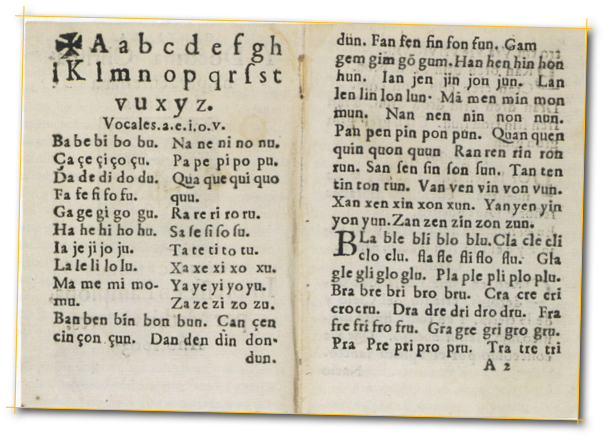 ✠ A a b c d e f g h
i K l m n o p q r ſ s t
v u x y z.
Vocales.a.e.i.o.v.
Ba be bi bo bu.
Ca çe çi ço çu.
Da de di do du.
Fa fe fi fo fu.
Ga ge gi go gu.
Ha he hi ho hu.
Ia je ji jo ju.
La le li lo lu.
Ma me mi mo-
mu.
Na ne ni no nu.
Pa pe pi po pu.
Qua que qui quo
quu.
Ra re ri ro ru.
Sa ſe ſi ſo ſu.
Ta te ti to tu.
Xa xe xi xo xu.
Ya ye yi yo yu.
Za ze zi zo zu.
Ban ben bin bon bun. Can çen
cin çon çun. Dan den din don-
dun.
dun. Fan fen fin fon fun. Gam
gem gim gõ gum. Han hen hin hon
hun. Ian jen jin jou jun. Lan
len lin lon lun. Mã men min mon
mun. Nan nen nin non nun.
Pan pen pin pon pun. Quan quen
quin quon quun Ran ren rin ron
run. San ſen ſin ſon ſun. Tan ten
tin ton tun. Van ven vin von vun.
Xan xen xin xon xun. Yan yen yin
yon yun. Zan zen zin zon zun.
BLa ble bli blo blu. Cla cle cli
clo clu. fla fle fli flo flu. Gla
gle gli glo glu. Pla ple pli plo plu.
Bra bre bri bro bru. Cra cre cri
cro cru. Dra dre dri dro dru. Fra
fre fri fro fru. Gra gre gri gro gru.
Pra Pre pri pro pru. Tra tre tri
A 2